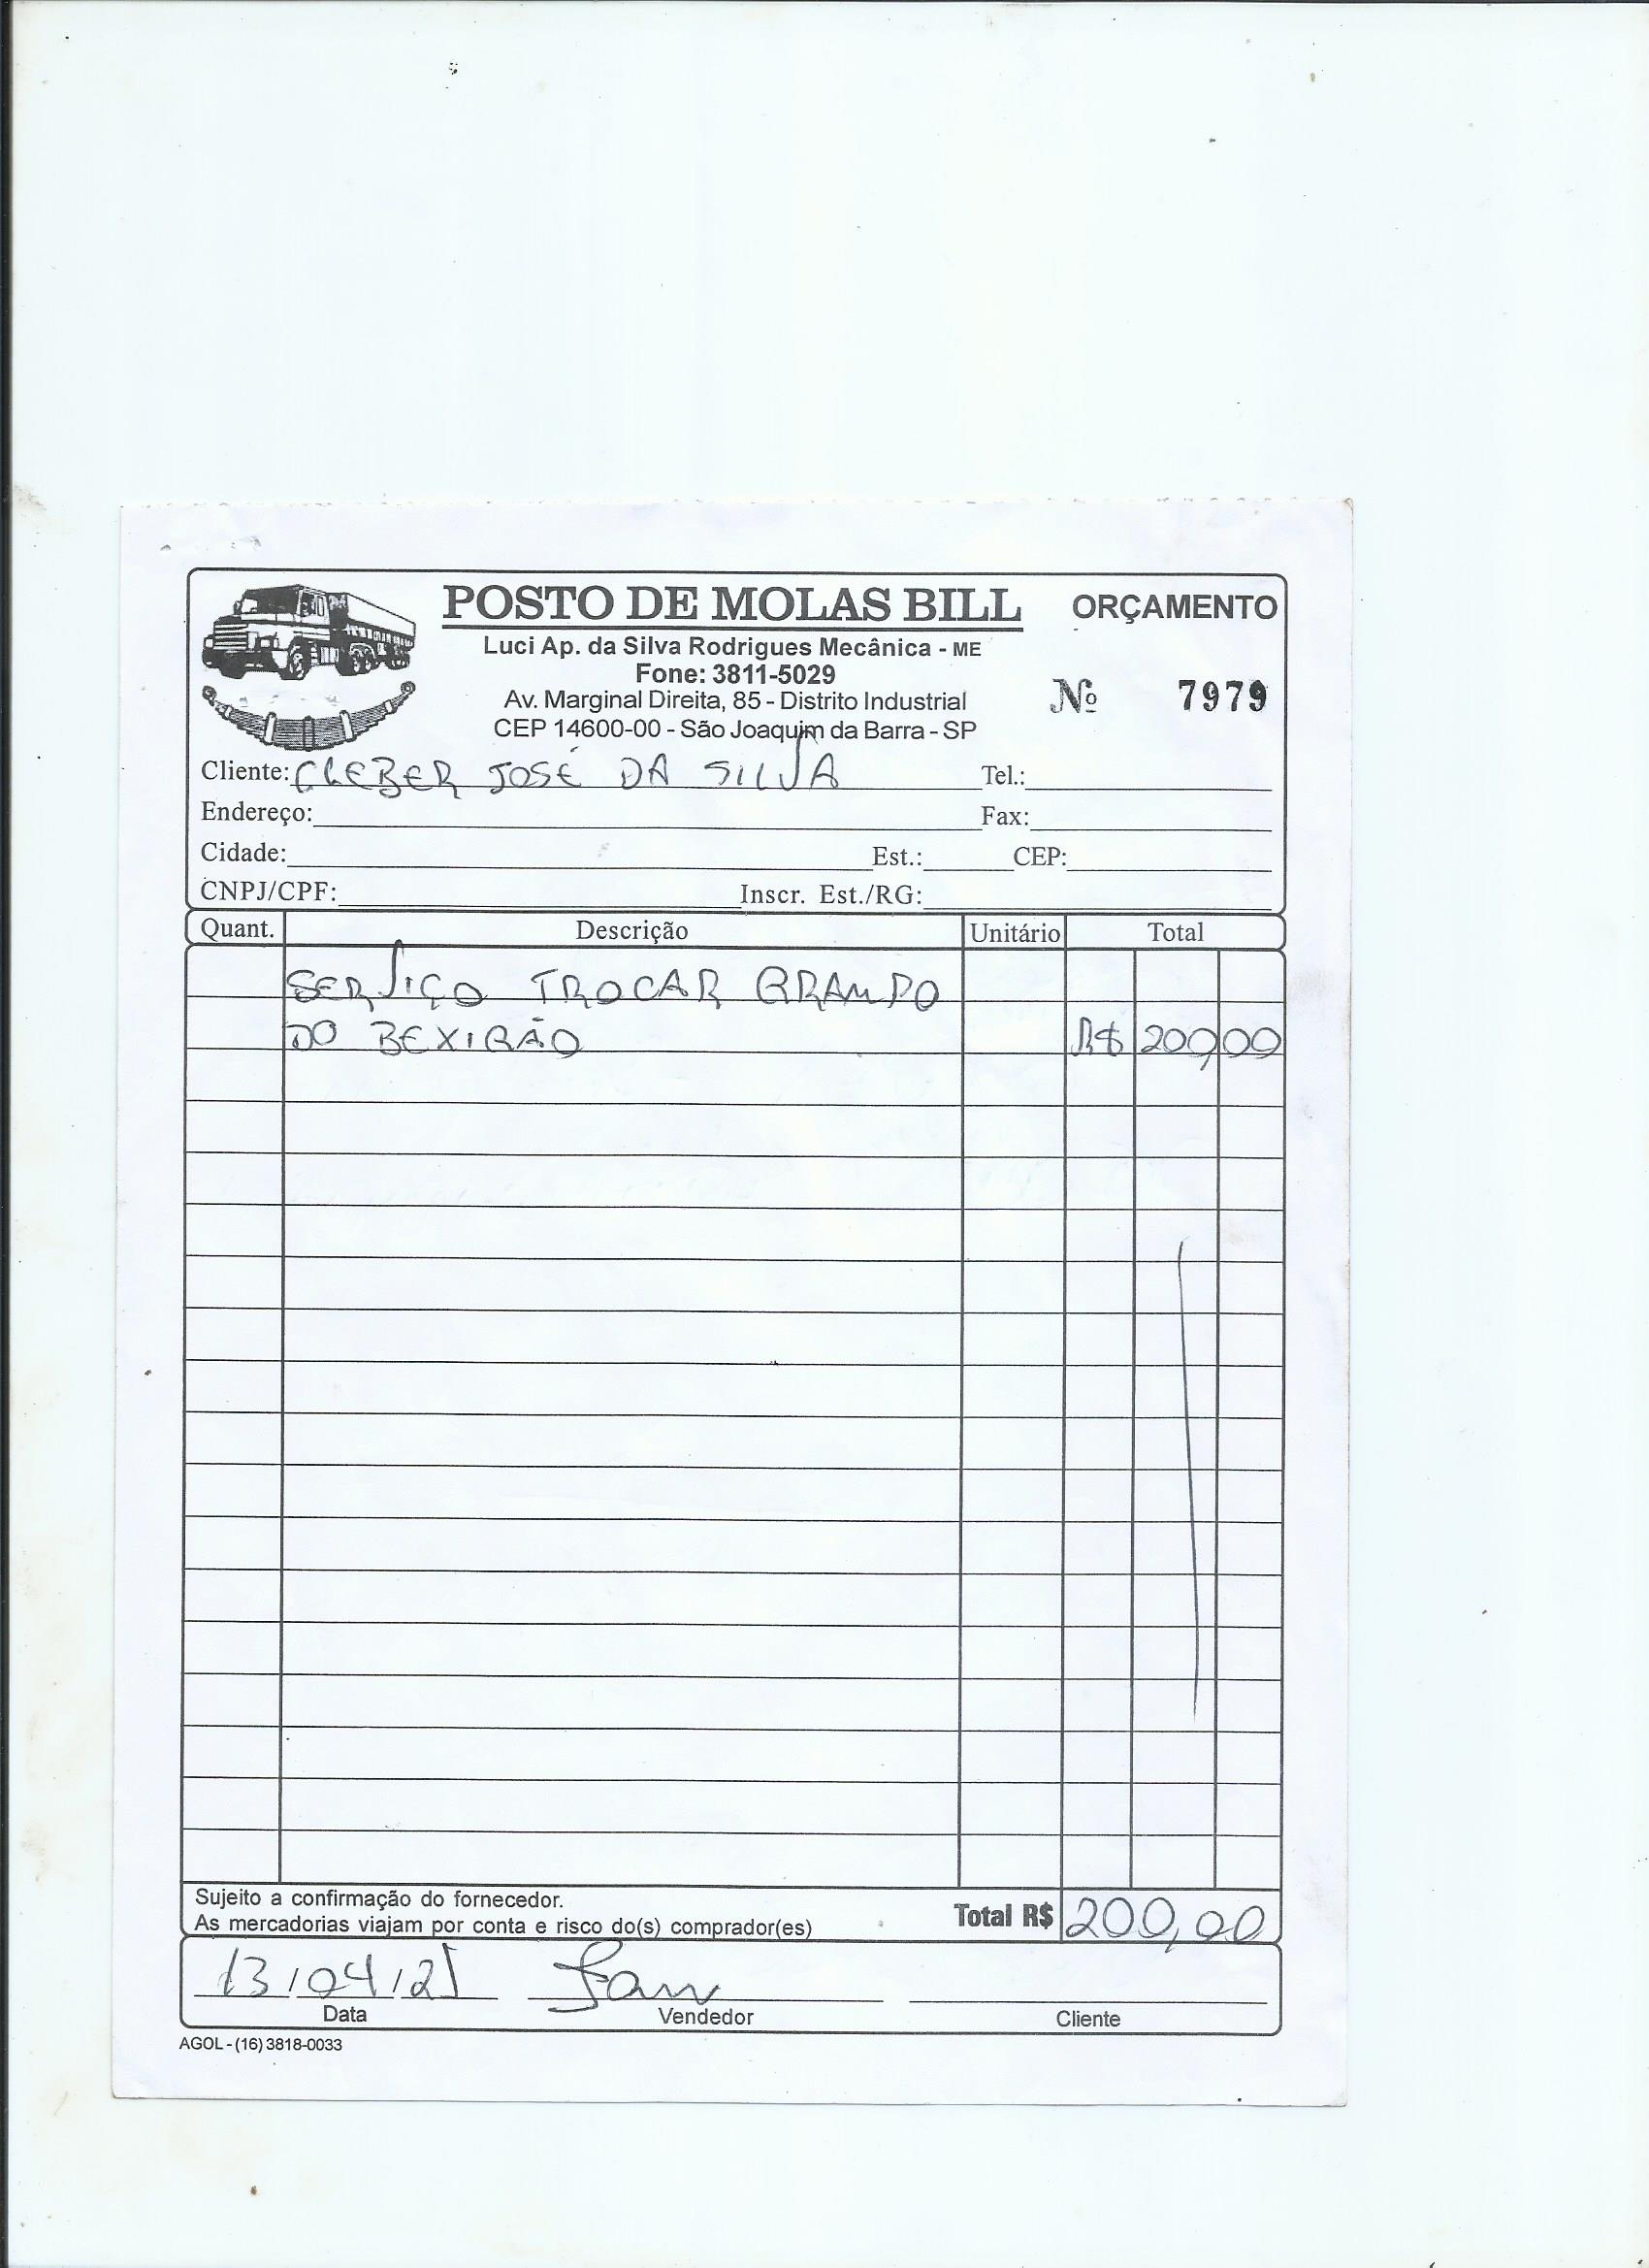 POSTO DE MOLAS BILL
ORÇAMENTO
Luci Ap. da Silva Rodrigues Mecânica - ME
Fone: 3811-5029
Av. Marginal Direita, 85 - Distrito Industrial
CEP 14600-00 - São Joaquim da Barra - SP
Nº 7979
Cliente: CLEBER JOSÉ DA SILVA Tel.:
Endereço: Fax:
Cidade: Est.: CEP:
CNPJ/CPF: Inscr. Est./RG:
Quant. Descrição Unitário Total
SERVIÇO TROCAR GRAMPO
DO BEXIGÃO R$ 200,00
Sujeito a confirmação do fornecedor.
As mercadorias viajam por conta e risco do(s) comprador(es)
Total R$ 200,00
13/04/21
Data Vendedor Cliente
AGOL - (16) 3818-0033